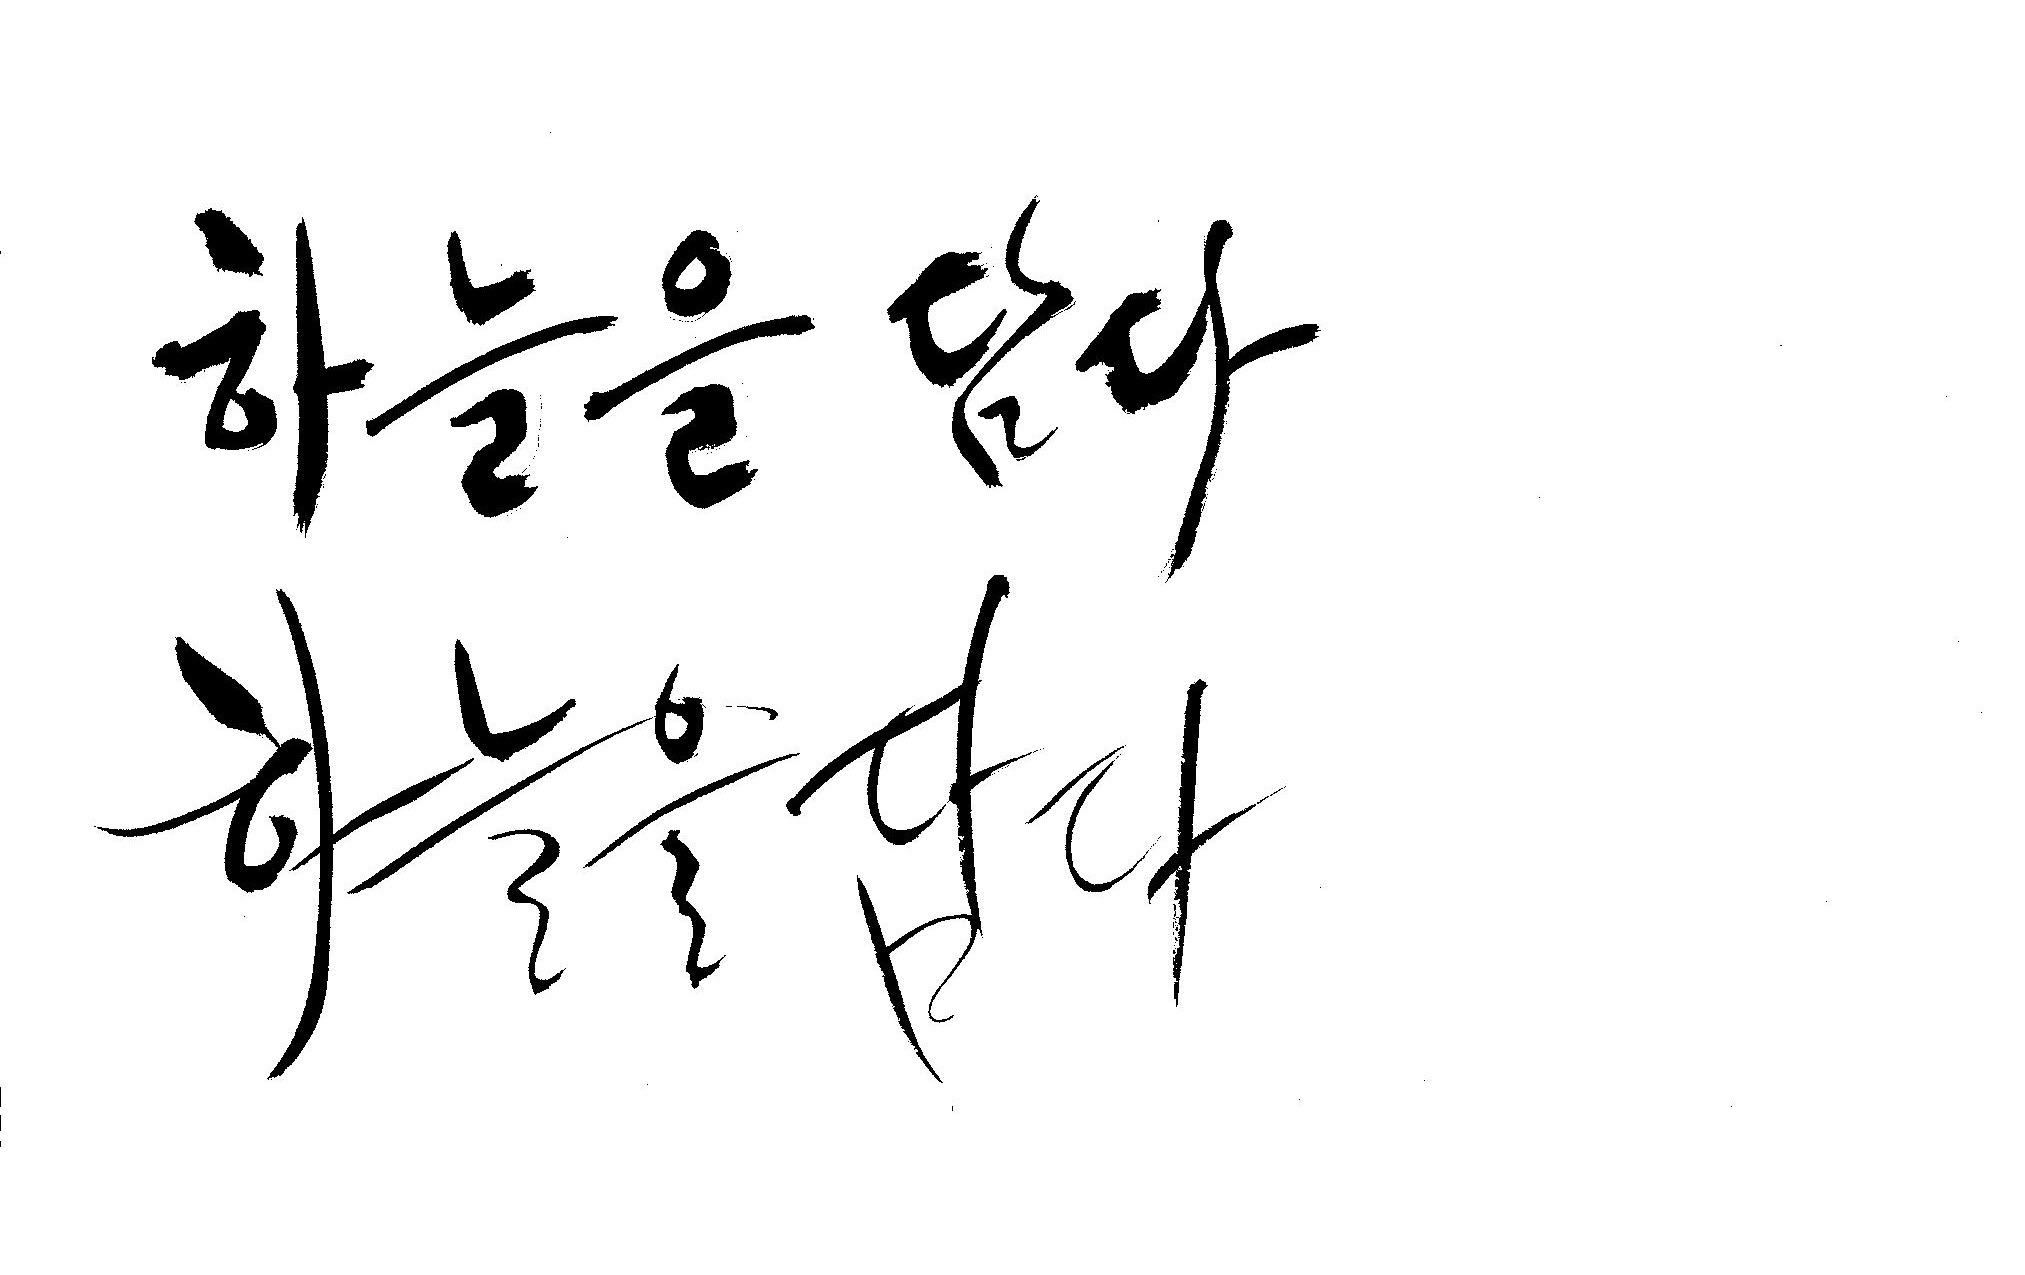 하늘을 담다
하늘을 담다